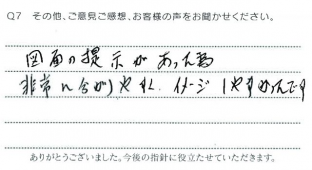 Q7 その他、ご意見ご感想、お客様の声をお聞かせください。
図面の提示があった為
非常に分かりやすく、イメージしやすかったです
ありがとうございました。今後の指針に役立たせていただきます。